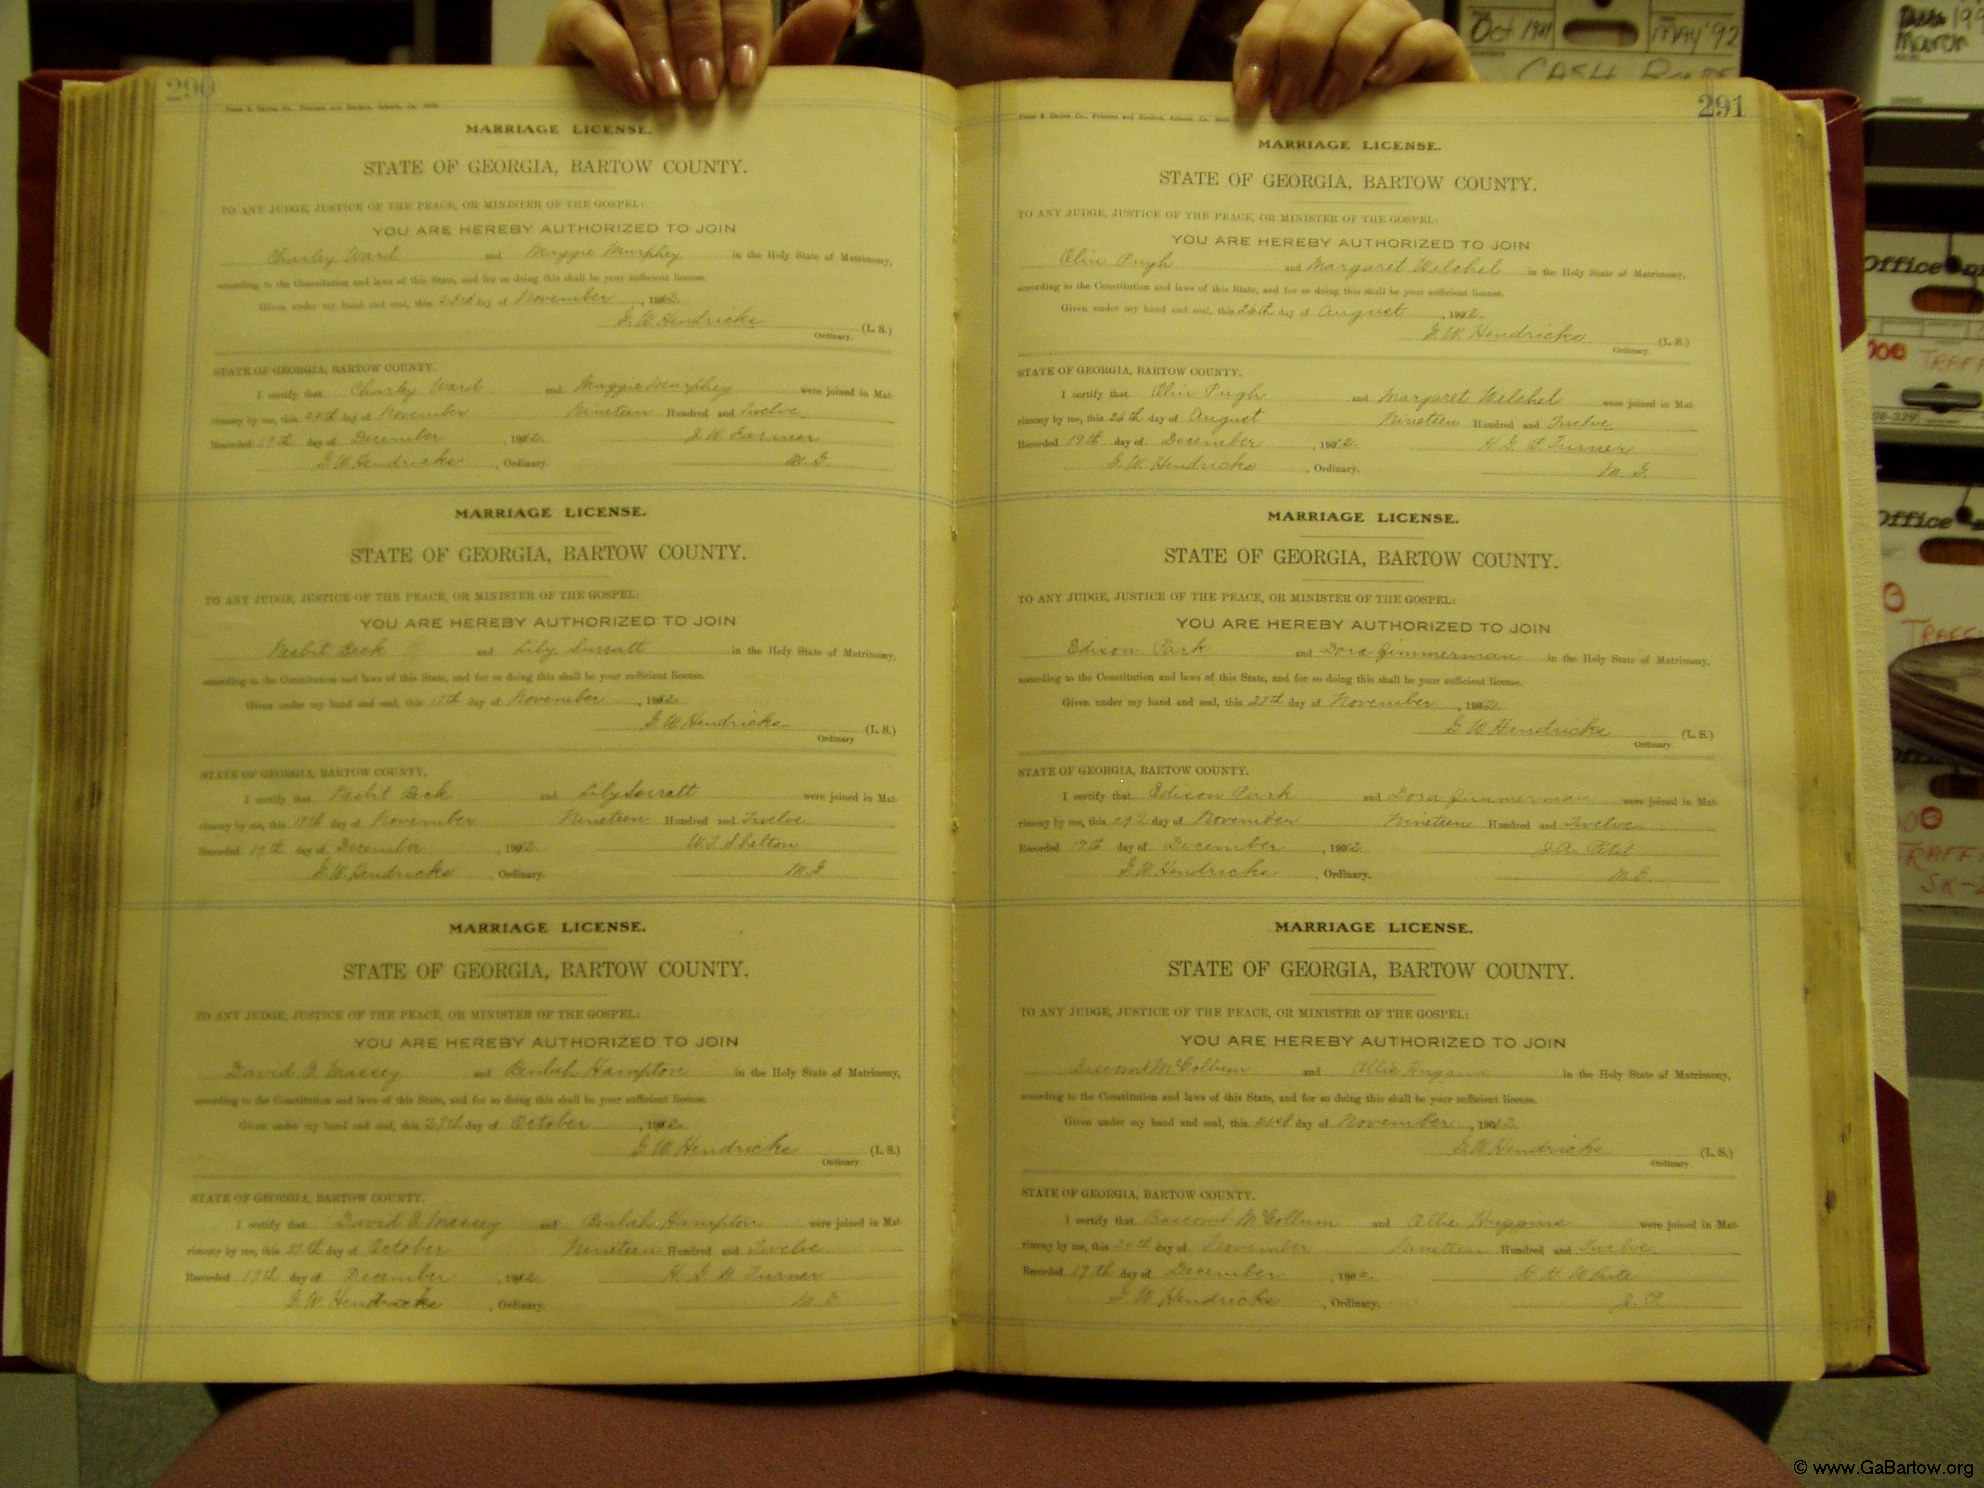 290
MARRIAGE LICENSE.
STATE OF GEORGIA, BARTOW COUNTY.
TO ANY JUDGE, JUSTICE OF THE PEACE, OR MINISTER OF THE GOSPEL:
YOU ARE HEREBY AUTHORIZED TO JOIN
Charley Ward and Maggie Murphey in the Holy State of Matrimony,
according to the Constitution and laws of this State, and for so doing this shall be your sufficient license.
Given under my hand and seal, this 23rd day of November, 1912.
G. W. Hendricks (L. S.)
Ordinary.
STATE OF GEORGIA, BARTOW COUNTY.
I certify that Charley Ward and Maggie Murphey were joined in Mat-
rimony by me, this 24th day of November Nineteen Hundred and Twelve.
Recorded 19th day of December, 1912. J. W. Farmer
G. W. Hendricks, Ordinary. M. G.
MARRIAGE LICENSE.
STATE OF GEORGIA, BARTOW COUNTY.
TO ANY JUDGE, JUSTICE OF THE PEACE, OR MINISTER OF THE GOSPEL:
YOU ARE HEREBY AUTHORIZED TO JOIN
Nesbit Beck and Lily Surratt in the Holy State of Matrimony,
according to the Constitution and laws of this State, and for so doing this shall be your sufficient license.
Given under my hand and seal, this day of November, 1912.
G. W. Hendricks (L. S.)
Ordinary
STATE OF GEORGIA, BARTOW COUNTY.
I certify that Nesbit Beck and Lily Surratt were joined in Mat-
rimony by me, this day of November Nineteen Hundred and Twelve
Recorded 19th day of December, 1912. W. T. Shelton
G. W. Hendricks, Ordinary. M. G.
MARRIAGE LICENSE.
STATE OF GEORGIA, BARTOW COUNTY.
TO ANY JUDGE, JUSTICE OF THE PEACE, OR MINISTER OF THE GOSPEL:
YOU ARE HEREBY AUTHORIZED TO JOIN
David Massey and Beulah Hampton in the Holy State of Matrimony,
according to the Constitution and laws of this State, and for so doing this shall be your sufficient license.
Given under my hand and seal, this day of October, 1912.
G. W. Hendricks (L. S.)
Ordinary
STATE OF GEORGIA, BARTOW COUNTY.
I certify that David Massey and Beulah Hampton were joined in Mat-
rimony by me, this day of October Nineteen Hundred and Twelve.
Recorded 19th day of December, 1912. Turner
G. W. Hendricks, Ordinary. M. G.
291
MARRIAGE LICENSE.
STATE OF GEORGIA, BARTOW COUNTY.
TO ANY JUDGE, JUSTICE OF THE PEACE, OR MINISTER OF THE GOSPEL:
YOU ARE HEREBY AUTHORIZED TO JOIN
Olin Pugh and Margaret Welchel in the Holy State of Matrimony,
according to the Constitution and laws of this State, and for so doing this shall be your sufficient license.
Given under my hand and seal, this 26th day of August, 1912.
G. W. Hendricks (L. S.)
Ordinary.
STATE OF GEORGIA, BARTOW COUNTY.
I certify that Olin Pugh and Margaret Welchel were joined in Mat-
rimony by me, this 26th day of August Nineteen Hundred and Twelve.
Recorded 19th day of December, 1912. Turner
G. W. Hendricks, Ordinary. M. G.
MARRIAGE LICENSE.
STATE OF GEORGIA, BARTOW COUNTY.
TO ANY JUDGE, JUSTICE OF THE PEACE, OR MINISTER OF THE GOSPEL:
YOU ARE HEREBY AUTHORIZED TO JOIN
Edison Park and Dora Zimmerman in the Holy State of Matrimony,
according to the Constitution and laws of this State, and for so doing this shall be your sufficient license.
Given under my hand and seal, this day of November, 1912.
G. W. Hendricks (L. S.)
Ordinary
STATE OF GEORGIA, BARTOW COUNTY.
I certify that Edison Park and Dora Zimmerman were joined in Mat-
rimony by me, this day of November Nineteen Hundred and Twelve.
Recorded 19th day of December, 1912. J. A.
G. W. Hendricks, Ordinary.
MARRIAGE LICENSE.
STATE OF GEORGIA, BARTOW COUNTY.
TO ANY JUDGE, JUSTICE OF THE PEACE, OR MINISTER OF THE GOSPEL:
YOU ARE HEREBY AUTHORIZED TO JOIN
Bascomb McCollum and Allie Huggins in the Holy State of Matrimony,
according to the Constitution and laws of this State, and for so doing this shall be your sufficient license.
Given under my hand and seal, this day of November, 1912.
G. W. Hendricks (L. S.)
Ordinary.
STATE OF GEORGIA, BARTOW COUNTY.
I certify that McCollum and Allie Huggins were joined in Mat-
rimony by me, this day of November Nineteen Hundred and Twelve
Recorded 19th day of December, 1912. White
G. W. Hendricks, Ordinary. J. P.
MAY '92
Office
TRAFF
Office
© www.GaBartow.org